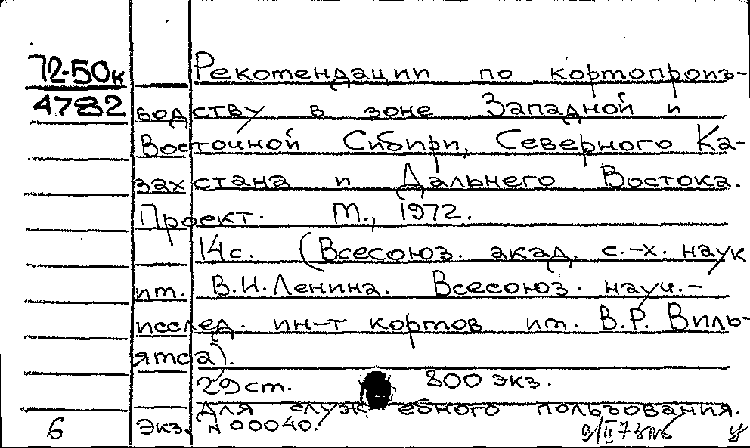 72-50к
4782
Рекомендации по кормопроиз-
водству в зоне Западной и
Восточной Сибири, Северного Ка-
захстана и Дальнего Востока.
Проект. М., 1972.
14с. (Всесоюз. акад. с.-х. наук
им. В.И.Ленина. Всесоюз. науч.-
исслед. ин-т кормов им. В.Р. Виль-
ямса).
29см. 800 экз.
Для служебного пользования.
6 экз. N 00040.